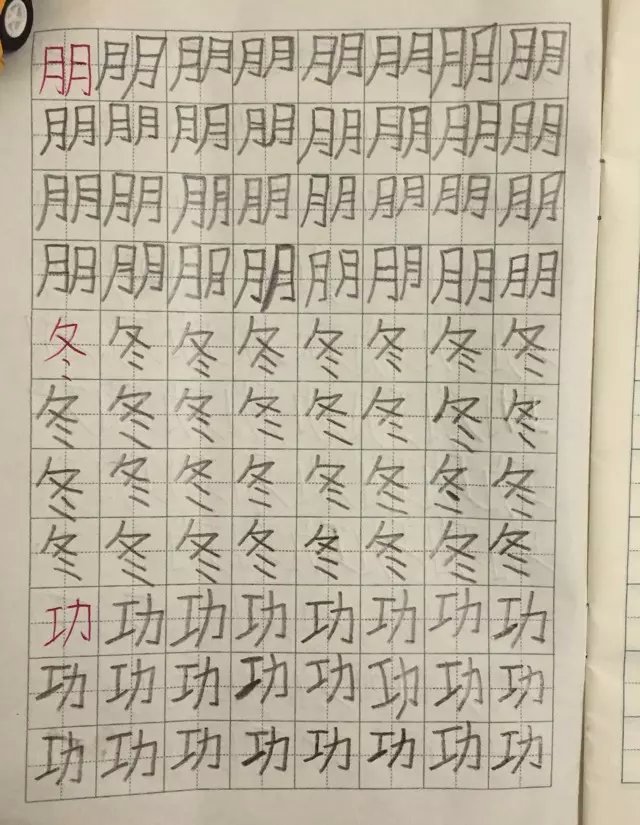 朋朋朋朋朋朋朋朋
朋朋朋朋朋朋朋朋
朋朋朋朋朋朋朋朋
朋朋朋朋朋朋朋朋
冬冬冬冬冬冬冬冬
冬冬冬冬冬冬冬冬
冬冬冬冬冬冬冬冬
冬冬冬冬冬冬冬冬
功功功功功功功功
功功功功功功功功
功功功功功功功功